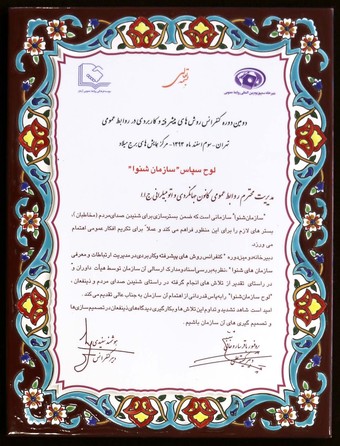 دومین دوره کنفرانس روش‌های پیشرفته و کاربردی در روابط عمومی
تهران - سوم اسفند ماه ۱۳۹۳ - مرکز همایش‌های برج میلاد
لوح سپاس "سازمان شنوا"
مدیریت محترم روابط عمومی کانون جهانگردی و اتومبیلرانی ج.ا.ا
"سازمان شنوا" سازمانی است که ضمن بسترسازی برای شنیدن صدای مردم (مخاطبان)،
بستر های لازم را برای این منظور فراهم می کند و عملا برای تکریم افکار عمومی اهتمام
می ورزد.
دبیرخانه و میزبان "کنفرانس روش های پیشرفته و کاربردی در مدیریت ارتباطات و معرفی
سازمان های شنوا" نظر به بررسی اسناد و مدارک ارسالی آن سازمان توسط هیأت داوران و
در راستای تقدیر از تلاش های انجام گرفته در راستای شنیدن صدای مردم و ذینفعان،
"لوح سازمان شنوا" را به پاس قدردانی از اهتمام آن سازمان به جناب عالی تقدیم می کند.
امید است شاهد تشدید و تداوم این تلاش ها و بکارگیری دیدگاه های ذینفعان در تصمیم سازی ها
و تصمیم گیری های آن سازمان باشیم.
هوشمند سفیدی
دبیر کنفرانس
پروفسور باقر ساروخانی